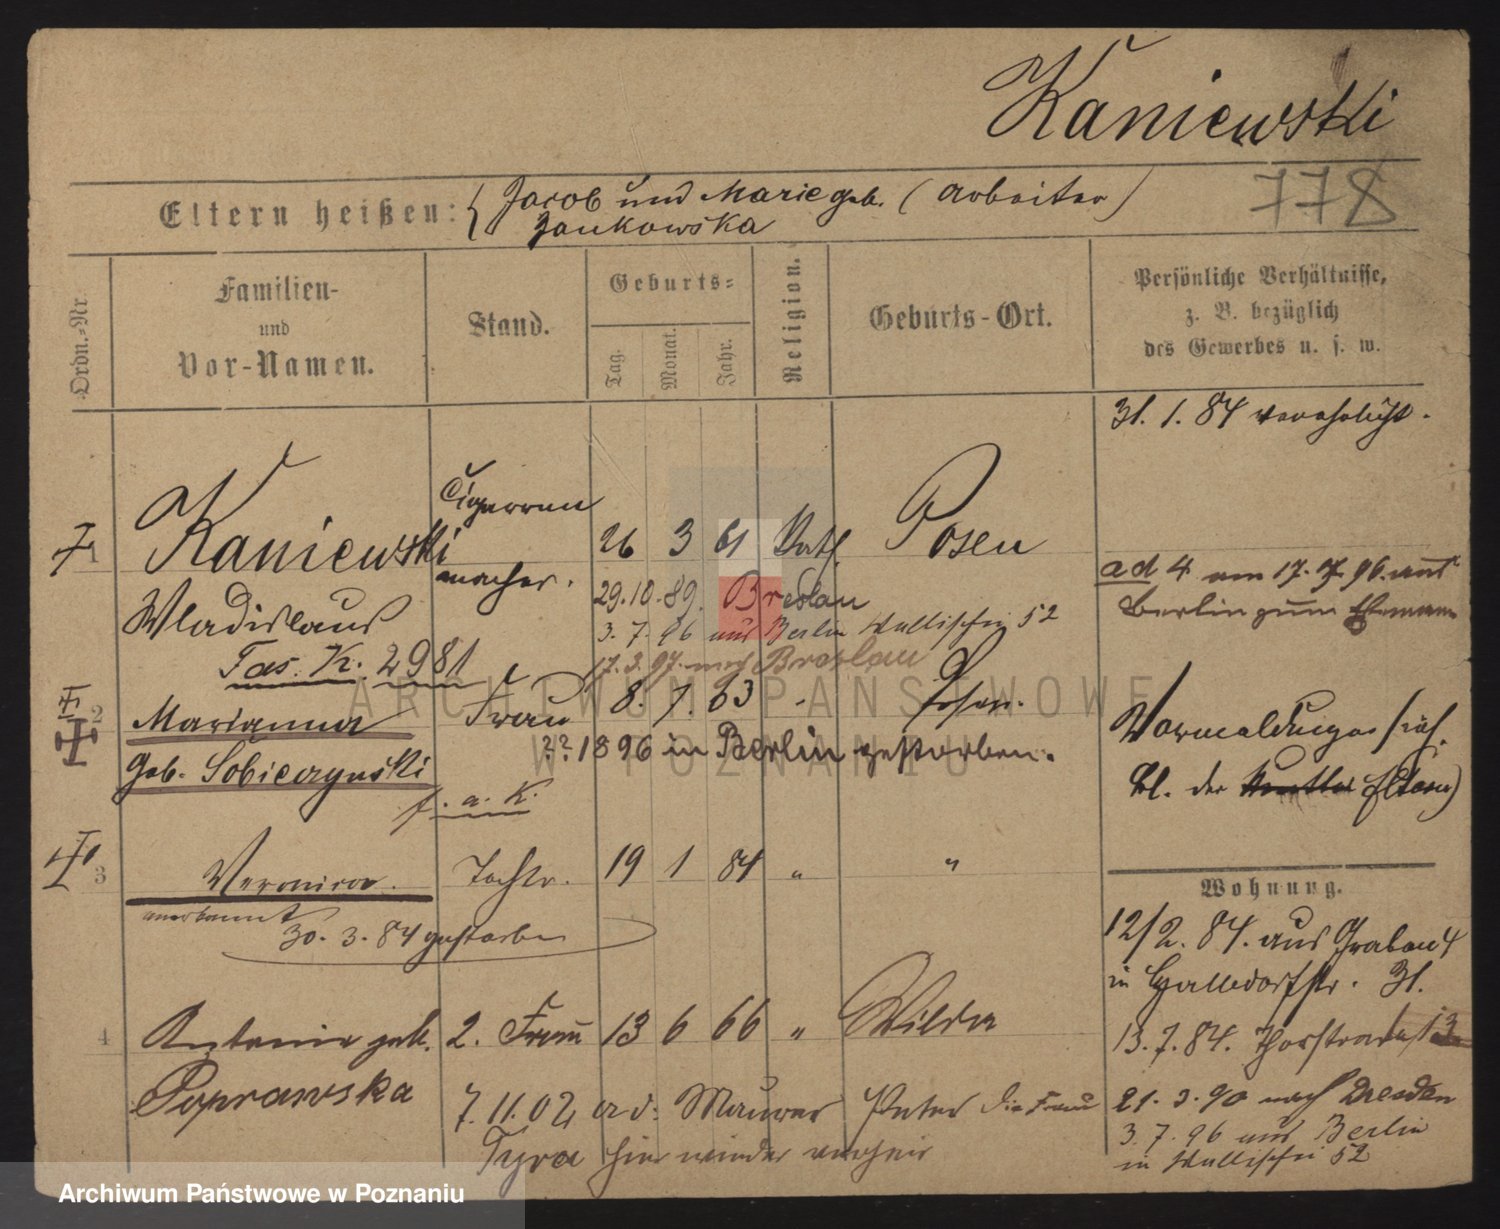 Kaniewski
778
Eltern heißen: { Jacob und Marie geb. (Arbeiter)
Jankowska
Ordn.-Nr.
Familien-
und
Vor-Namen.
Stand.
Geburts-
Tag.
Monat.
Jahr.
Religion.
Geburts-Ort.
Persönliche Verhältnisse,
z. B. bezüglich
des Gewerbes u. s. w.
31. 1. 84 verehelicht.
1 Kaniewski Cigarren 26 3 61 Kath. Posen
macher.
Wladislaus 29. 10. 89. Breslau
3. 7. 96 aus Berlin Wallischei 52
Fas. K. 2981 17. 3. 97. nach Breslau
ad 4 am 17. 7. 96. aus
Berlin zum Ehemann
2 Marianna Frau 8. 7. 63 - Posen.
geb. Sobierayski ?? 1896 in Berlin gestorben.
f. a. K.
Bl. der Eltern)
3 Veronica. Tochtr. 19 1 84 " "
anerkannt 30. 3. 84 gestorben
Wohnung.
12/2. 84. aus Graben 4
in Halbdorfstr. 31.
13. 7. 84. Thorstraße 13
21. 3. 90 nach Dresden
3. 7. 96 aus Berlin
in Wallischei 52
4 Antonie geb. 2. Frau 13 6 66 " Wilda
Poprawska 7. 11. 02 ad: Maurer Peter die Frau
Tyra hier wieder
ARCHIWUM PAŃSTWOWE
W POZNANIU
Archiwum Państwowe w Poznaniu